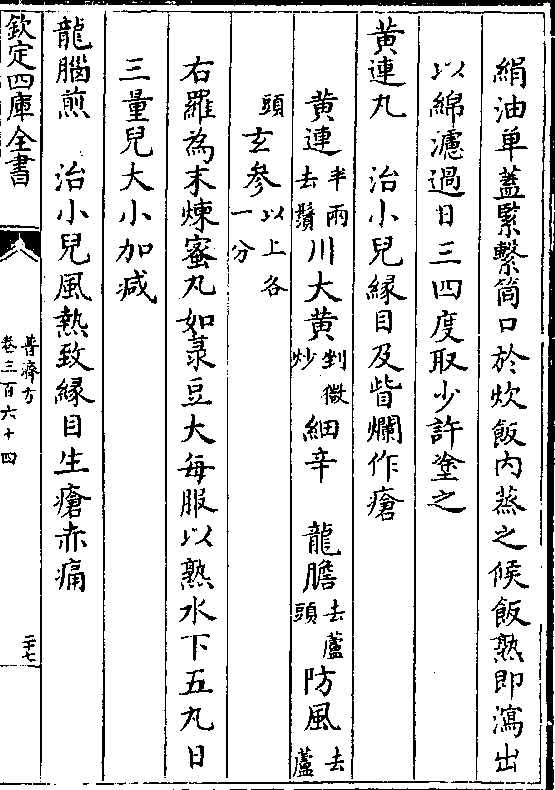 絹油单蓋緊繫筒口於炊飯内蒸之候飯熟即瀉出
以綿濾過日三四度取少許塗之
黄連丸　治小兒緣目及眥爛作瘡
黄連半兩去鬚川大黄剉微炒細辛　龍膽去蘆頭防風去蘆
頭玄參以上各一分
右羅為末煉蜜丸如菉豆大每服以熟水下五丸日
三量兒大小加减
龍腦煎　治小兒風熱致緣目生瘡赤痛
欽定四庫全書
普濟方
卷三百六十四
二十七